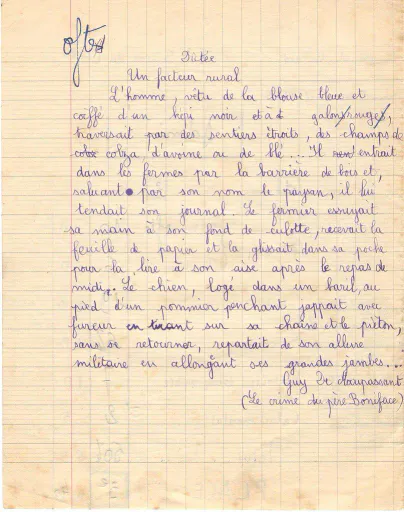 Dictée
Un facteur rural
L'homme, vêtu de la blouse bleue et
coiffé d'un képi noir et à galons rouges,
traversait par des sentiers étroits, des champs de
colza d'avoine ou de blé... Il entrait
dans les fermes par la barrière de bois et,
saluant par son nom le paysan, il lui
tendait son journal. Le fermier essuyait
sa main à son fond de culotte, recevait la
feuille de papier et la glissait dans sa poche
pour la lire à son aise après le repas de
midi. Le chien, logé dans un baril, au
pied d'un pommier penchant jappait avec
fureur en tirant sur sa chaîne et le piéton,
sans se retourner, repartait de son allure
militaire en allongeant ses grandes jambes...
Guy de Maupassant
(Le crime du père Boniface)